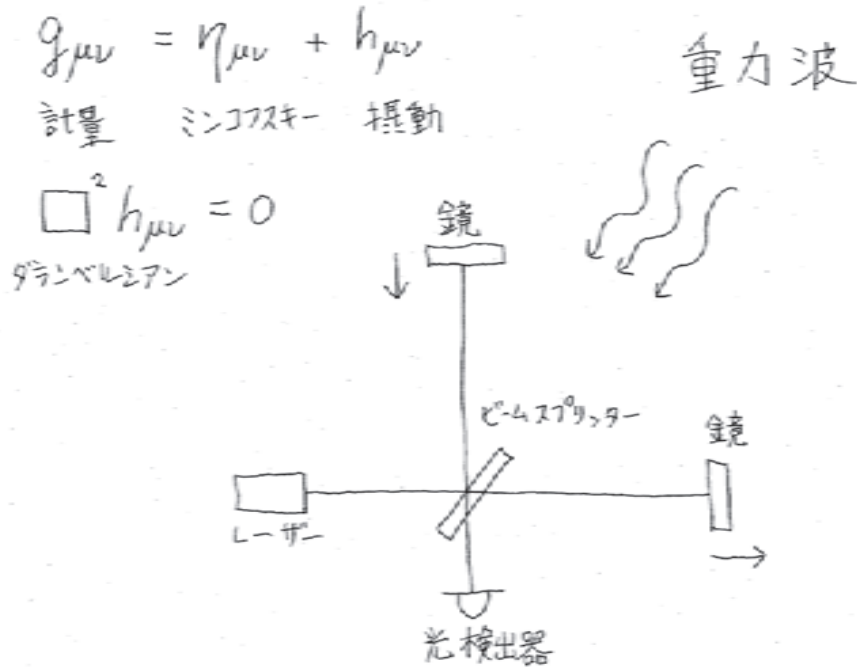 gμν = ημν + hμν
計量 ミンコフスキー 摂動
重力波
□² hμν = 0
ダランベルシアン
鏡
ビームスプリッター
鏡
レーザー
光検出器